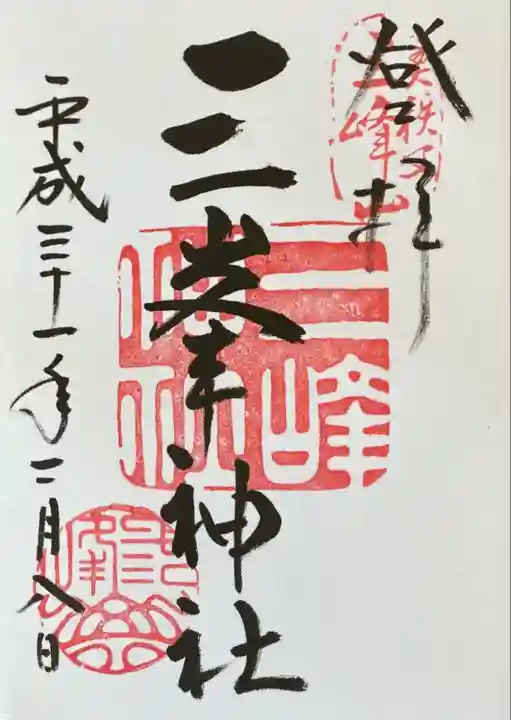 登拝
奥秩父
三峰山
三峯神社
三峰
神社
平成三十一年二月八日